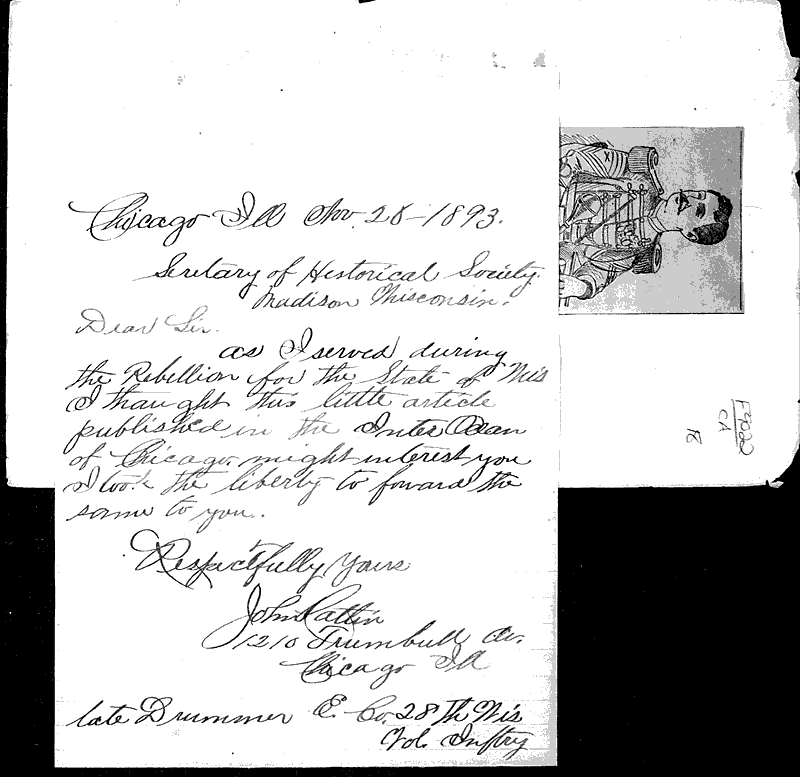 Chicago Ill Nov. 28-1893.
Secretary of Historical Society.
Madison Wisconsin.
Dear Sir.
as I served during
the Rebellion for the State of Wis
I thought this little article
published in the Inter Ocean
of Chicago. might interest you
I took the liberty to foward the
same to you.
Respectfully Yours
John Pattin
1210 Trumbull Av.
Chicago Ill
late Drummer E. Co. 28th Wis
Vol. Inftry
F9022
CA
18